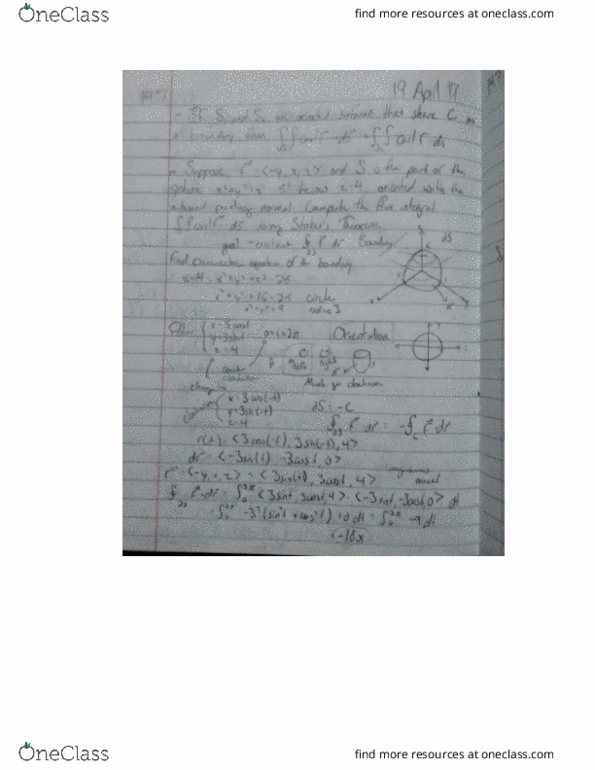 OneClass
find more resources at oneclass.com
#47
19 April 17
- If S₁ and S₂ are oriented surfaces that share C as
a boundary then ∫∫ curl F · dS = ∫∫ curl F dS
Suppose F = <-y, x, z> and S is the part of the
sphere x²+y²+z² below z=4, oriented with the
outward pointing normal. Compute the flux integral
∫∫ curl F dS using Stokes's Theorem
goal - evaluate ∮ F dr Boundary
dS
Find parametric equation of boundary
z=4 x²+y²+z²=25
x²+y²+16=25 circle
x²+y²=9 radius 3
x=3cost
y=3sint
z=4
0≤t≤2π
Orientation
Must go clockwise
change
x=3cos(-t)
y=3sin(-t)
z=4
dS=-C
∮ F dr = -∮ F dr
r(t)=<3cos(-t), 3sin(-t), 4>
dr=<-3sin(t), -3cost, 0>
F=<-y, x, z>=<3sin(t), 3cost, 4>
cancel
∮ F·dr=∫₀²π <3sint, 3cost, 4>·<-3sint, -3cost, 0> dt
=∫₀²π -3²(sin²t+cos²t)+0 dt=∫₀²π -9 dt
-18π
OneClass
find more resources at oneclass.com